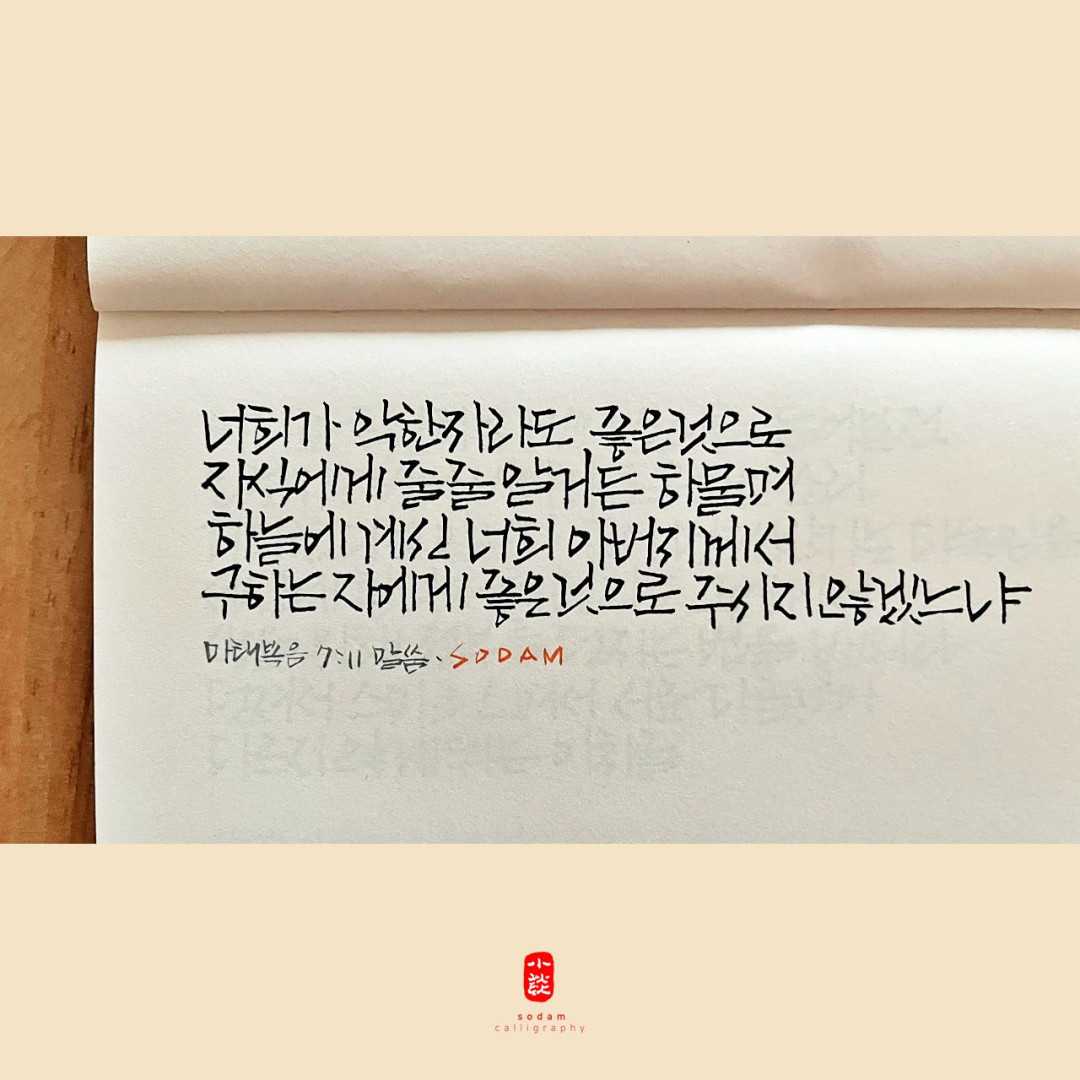 너희가 악한자라도 좋은것으로
자식에게 줄줄 알거든 하물며
하늘에 계신 너희 아버지께서
구하는 자에게 좋은것으로 주시지 않겠느냐
마태복음 7:11 말씀. SODAM
小談
sodam
calligraphy